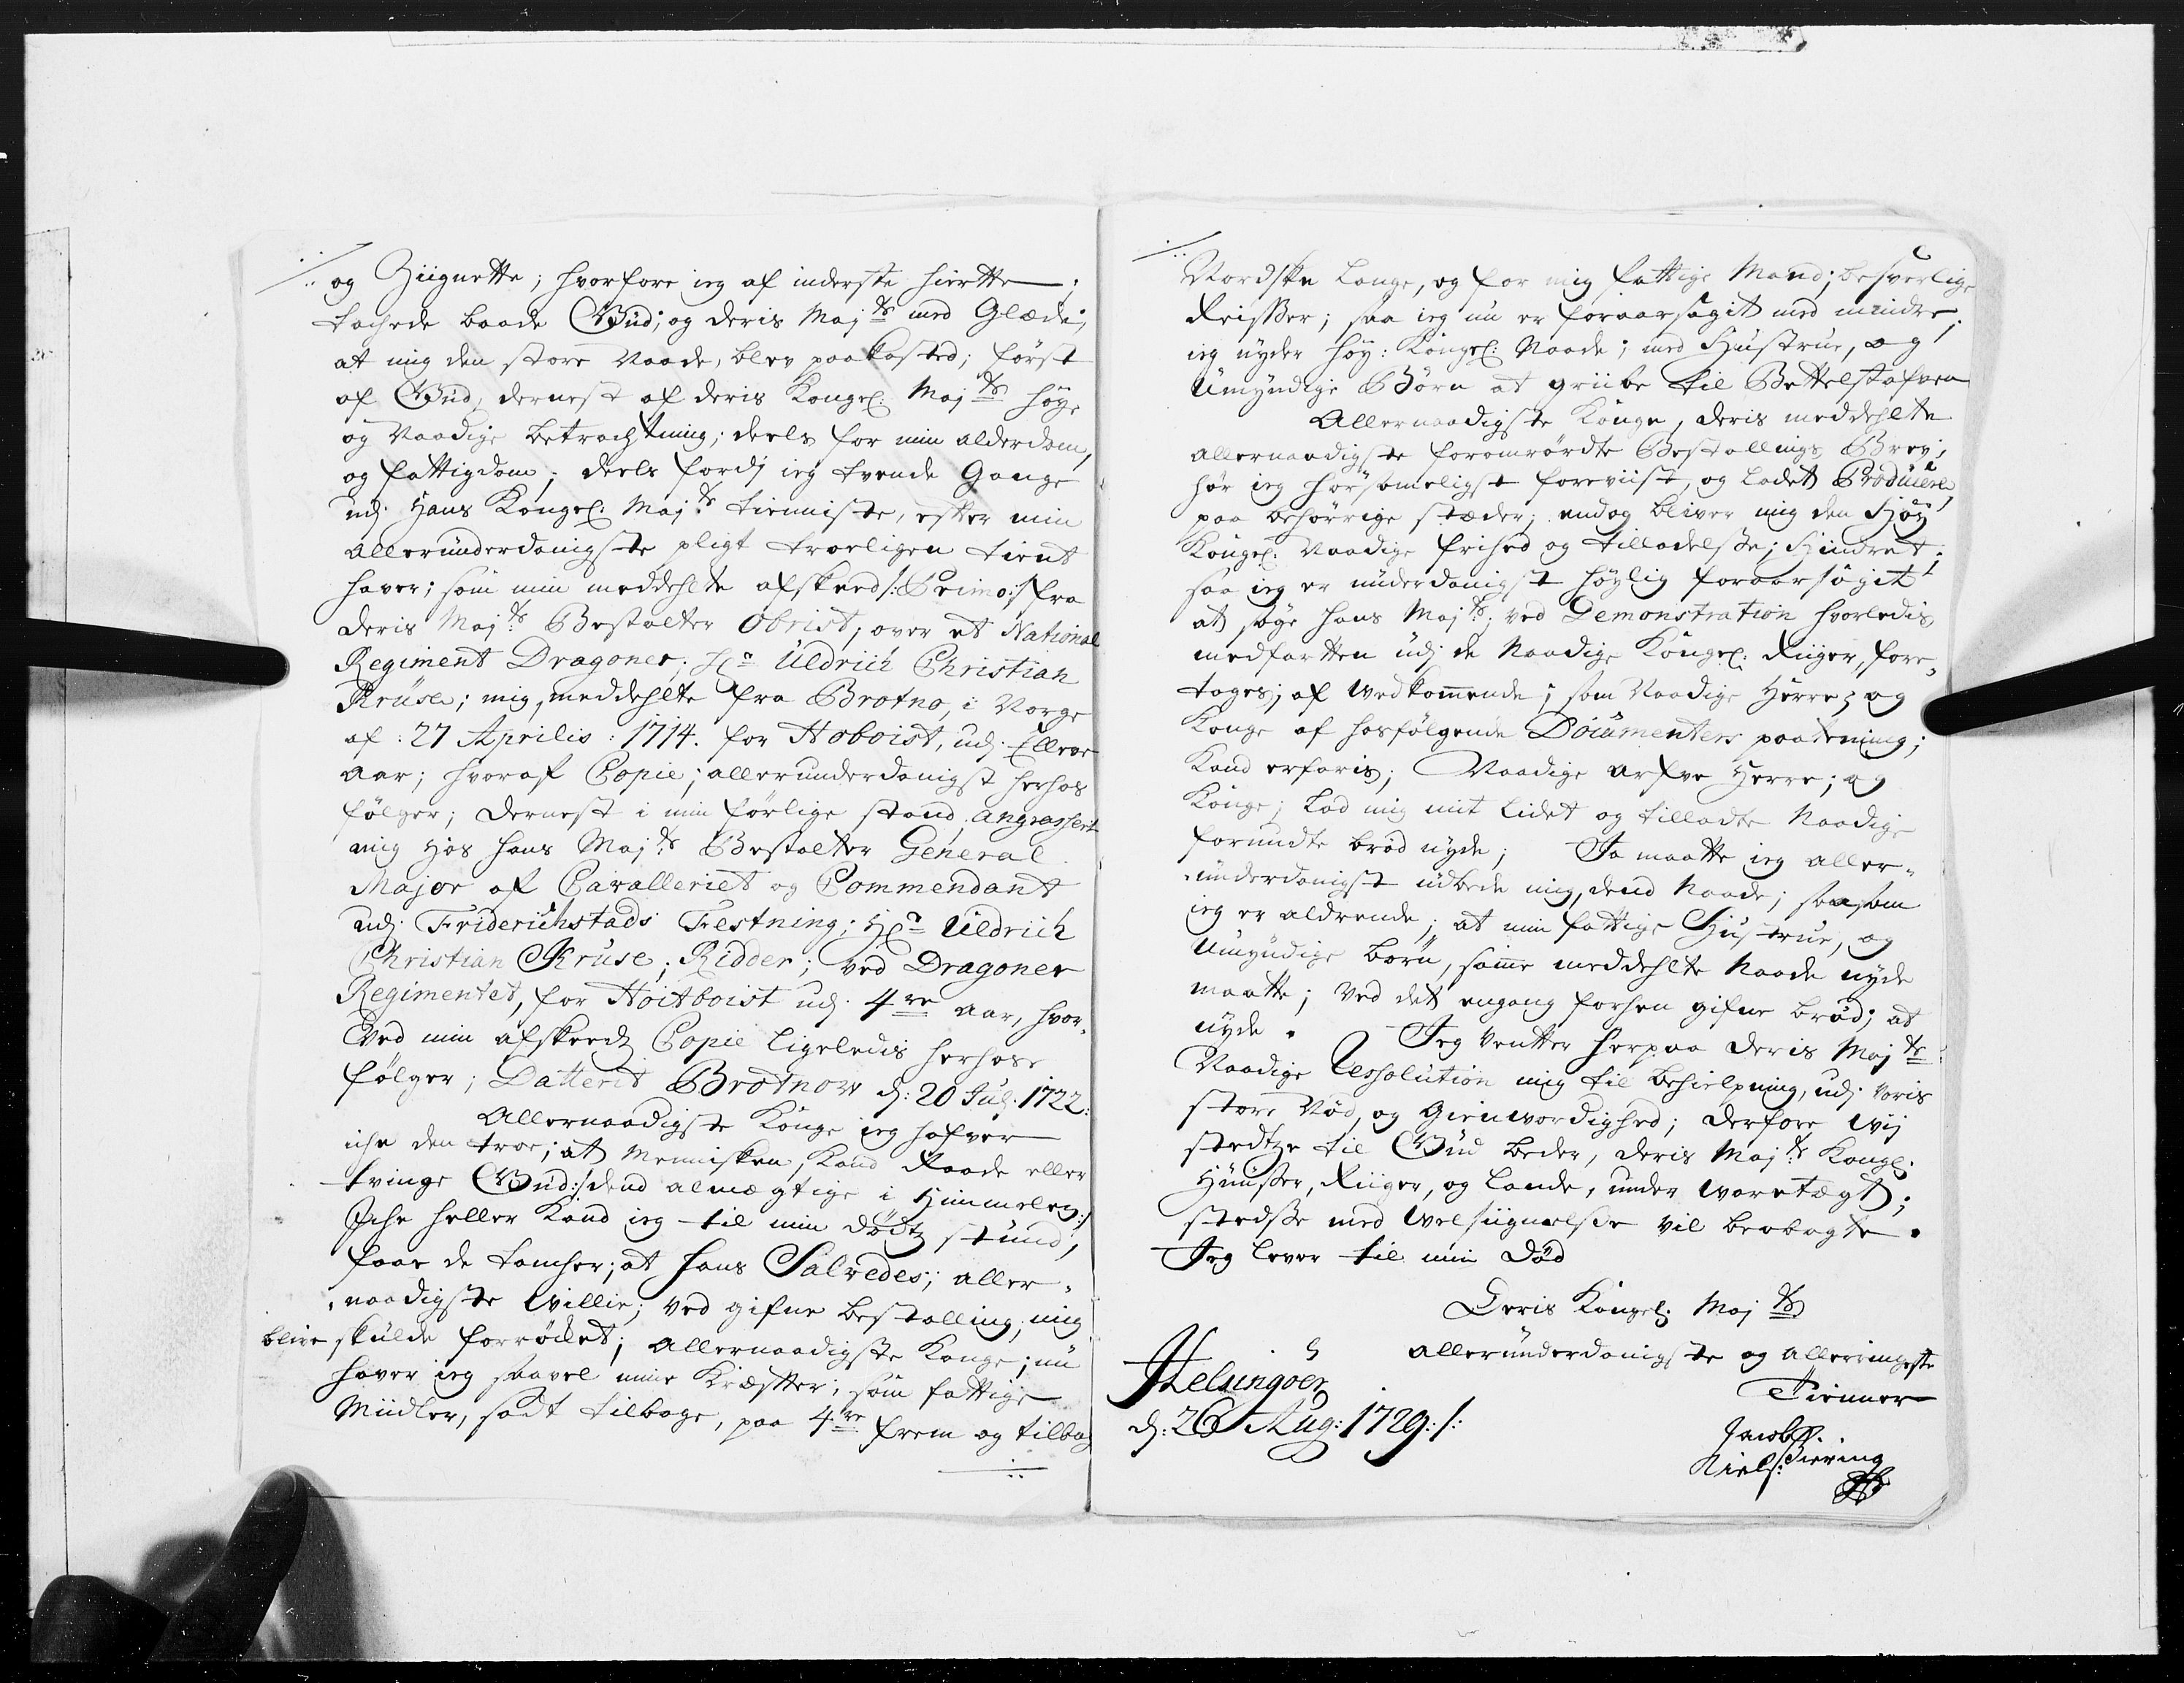 og Ziignette; hvorfore ieg af inderste hiertte
tachede baade Gud; og deris Maj:ts med Glæde;
at mig den store Naade, blev paakasted; først
af Gud, dernest af deris Kongel: Maj:ts høye
og Naadige betrachtning; deels for min alderdom,
og fattigdom; deels fordj ieg tvende Gange
udj Hans Kongel: Maj:ts tienniste, efter min
allerunderdanigste pligt troeligen tient
haver; som min meddehlte afskeed /:Primo:/ fra
deris Maj:ts Bestalter Obrist, over et National
Regiment Dragoner; Hr: Uldrich Christian
Kruse; mig, meddehlte fra Brotno, i Norge
af: 27 Aprilis: 1714. for Hoboist, udj Elleve
Aar; hvoraf Copie; allerunderdanigst herhos
følger; dernest i min førlige stand, angrassert
mig hos hans Maj:ts Bestalter General
Major af Cavalleriet og Commendant
udj Friderichstads Festning; Hr: Uldrich
Christian Kruse; Ridder; ved Dragoner
Regimentet, for Hoitboist udj 4re aar, hvor-
ved min afskeedz Copie ligeledis herhos
følger; Datterit Brotnow d: 20 Jul: 1722:
Allernaadigste Konge ieg hafver
iche den troe; at Mennisken, kand Raade eller
tvinge Gud:/dend almægtige i Himmelen:/
Iche heller kand ieg til min dødtz stund,
faae de tancher; at hans Salvedes; aller-
naadigste Willie; ved gifne bestalling, mig
blive skulde forrøcket; Allernaadigste Konge; nu
haver ieg saavel mine Kræfter; som fattige
Midler, sadt tilbage, paa 4re frem og tilbag
Nordske lange, og for mig fattige Mand; besverlige
Reisser; saa ieg nu er foraarsagit med mindre,
ieg nyder høy: Kongel: Naade; med Hustrue, og
Umyndige Børn at griibe til Bettelstafven
Allernaadigste Konge, deris meddehlte
allernaadigste foromrørdte Bestallings Brev;
har ieg hørsommeligst foreviist, og ladet Producere
paa behørrige stæder; endog bliver mig den Høy
Kongel: Naadige frihed og tilladelsse; Hindret;
saa ieg er underdanigst høylig foraarsagit
at søge hans Maj:ts; ved Demonstration hvorledis
medfartten udj de Naadige Kongel: Riiger, fore-
tages; af Wedkommende; som Naadige Herre; og
Konge af hosfølgende Documenters paatening;
kand erfaris; Naadige arfve Herre; og
Konge; lad mig mit lidet og tilladte Naadige
forundte brød nyde; Ja maatte ieg aller-
underdanigst udbede mig, dend Naade; saasom
ieg er aldrende; at min fattige Hustrue, og
Umyndige børn, samme meddehlte Naade nyde
maatte; ved det engang forhen gifne brød; at
nyde. Jeg venter herpaa deris Maj:ts
Naadige Ressolution mig til behielpning, udj voris
store Nød, og Gienwordighed; derfore wij
stedtze til Gud beder, deris Maj:ts Kongl:
Huusser, Riiger, og lande, under waretægt;
stedsse med Welsiignelsse vil beobagte.
Jeg lever til min død
Deris Kongel: Maj:ts
allerunderdanigste og allerringeste
Tienner
Helsingøer
d: 26 Aug: 1729:/:
Jacob
Niels: Ziering